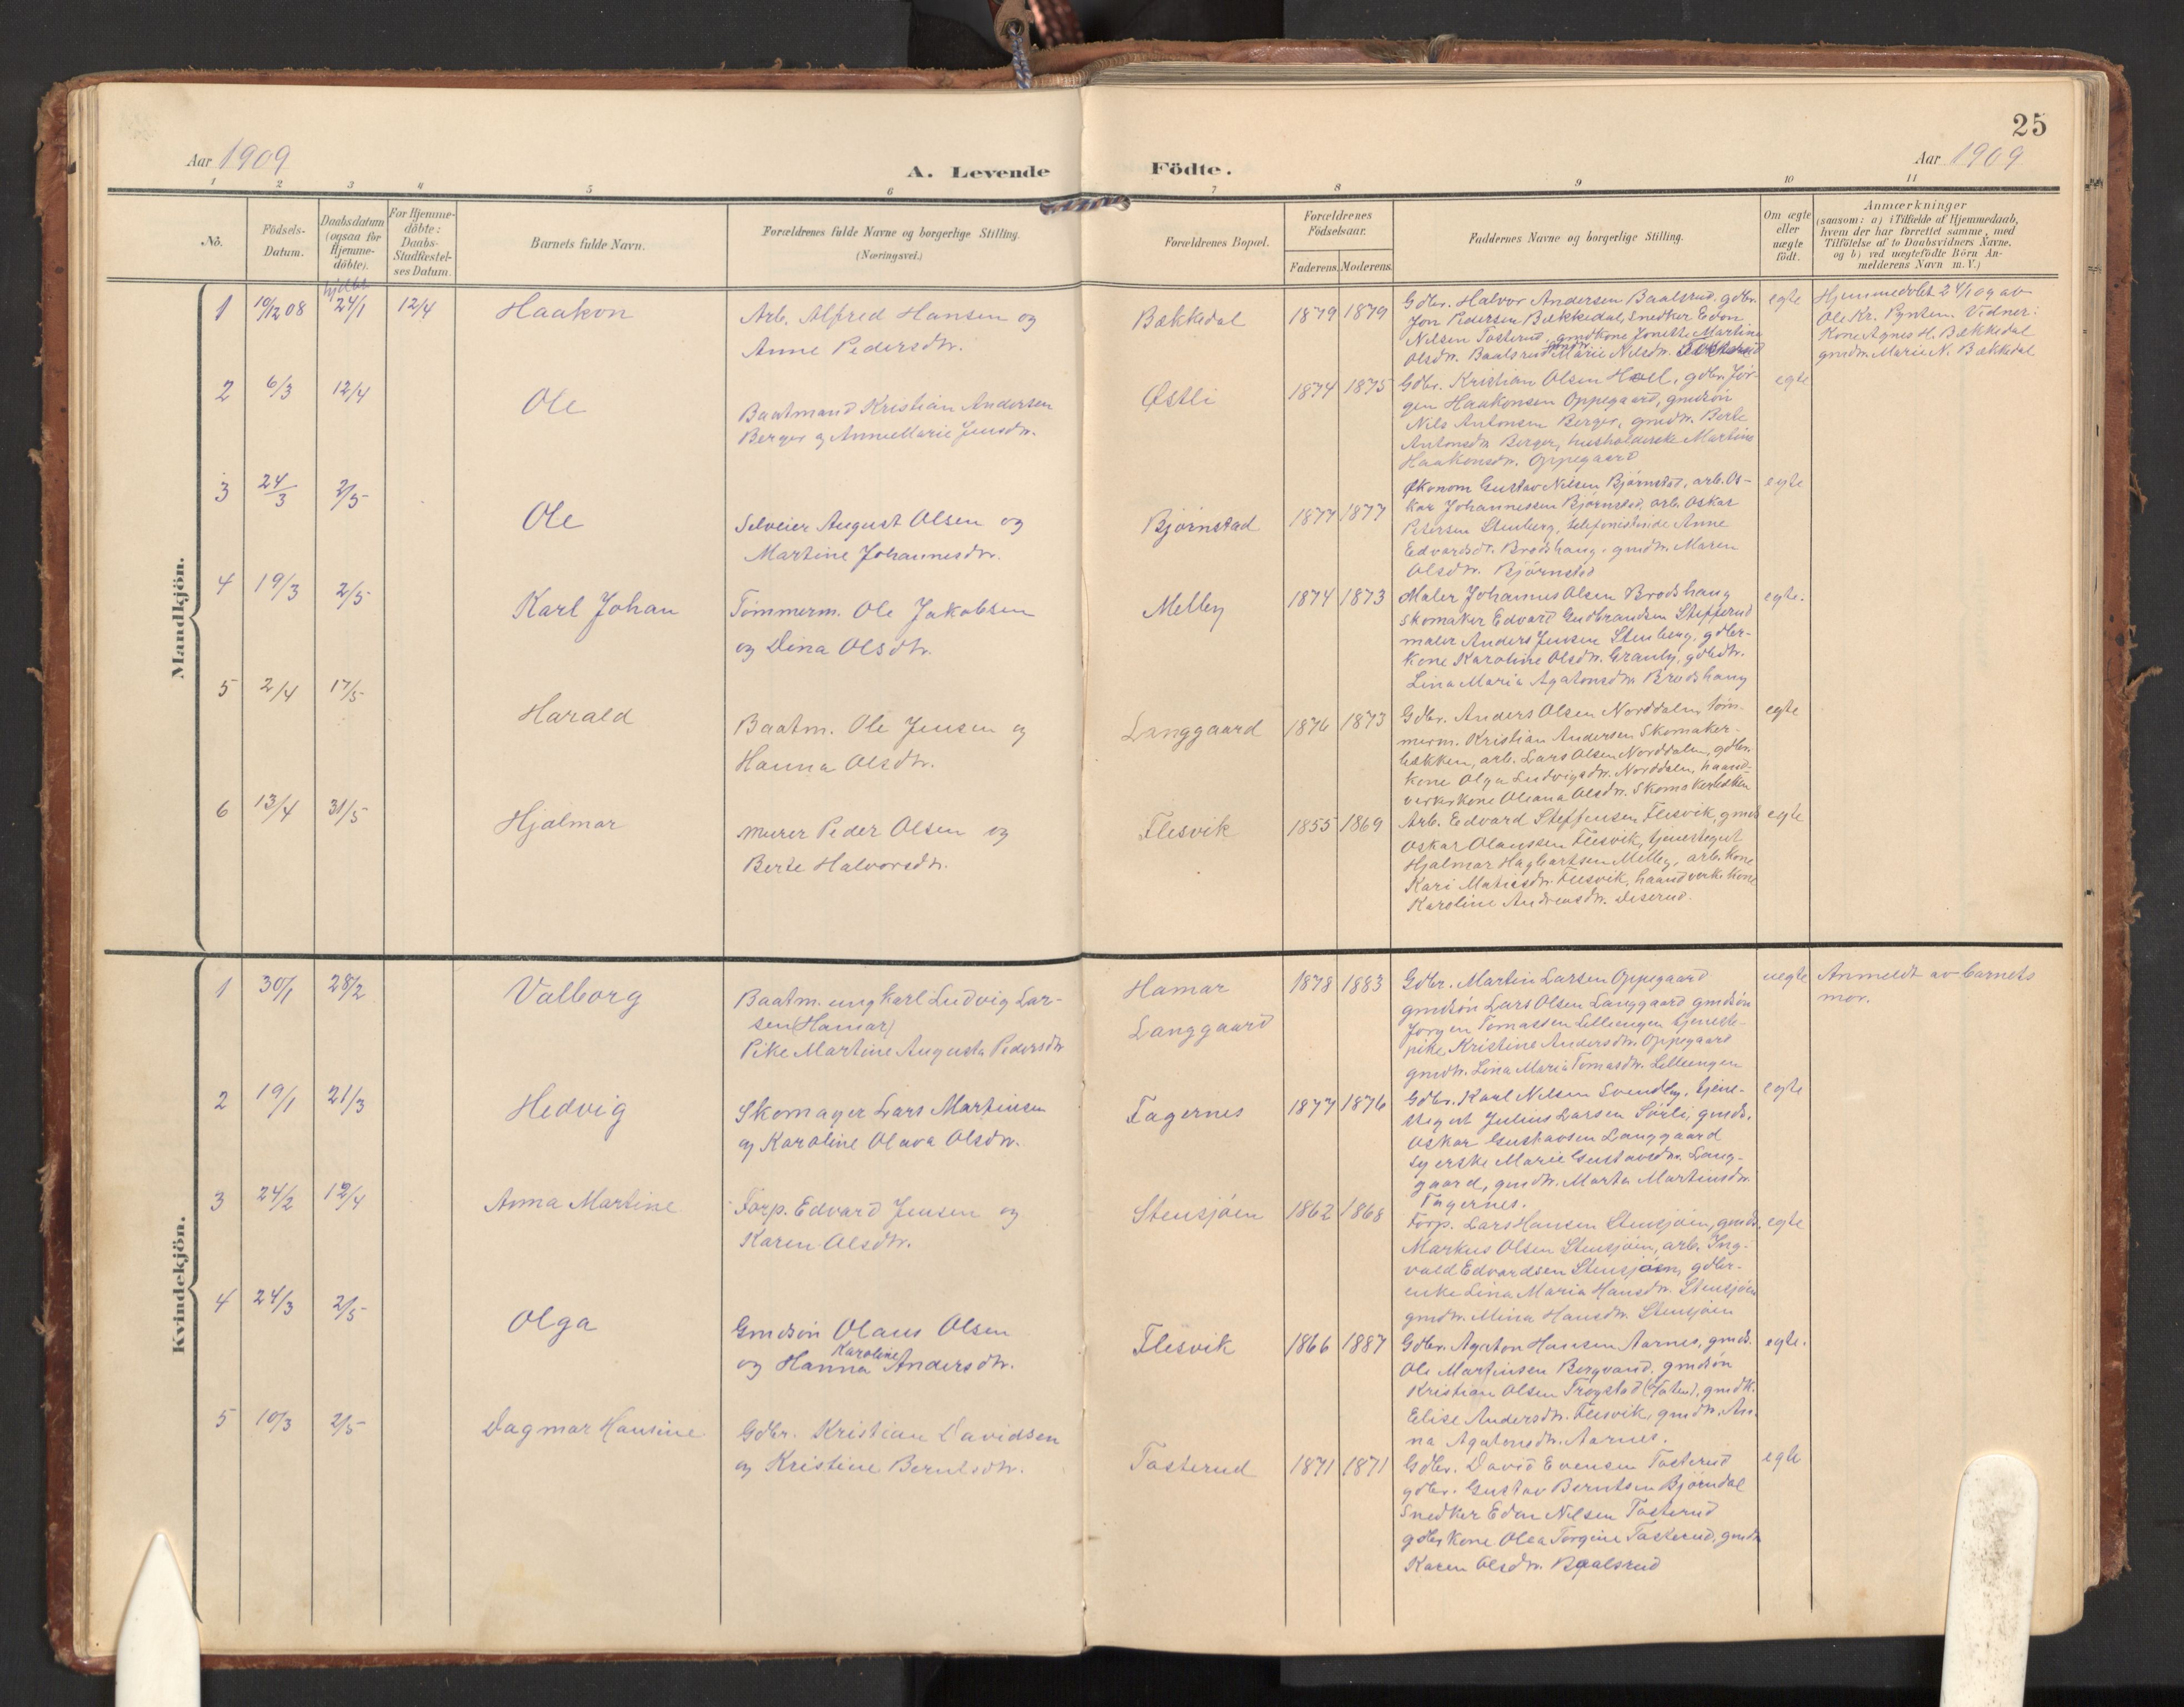 25
Aar 1909
A. Levende Födte.
Aar 1909
1 2 3 4 5 6 7 8 9 10 11
No.
Födsels-
Datum.
Daabsdatum
(ogsaa for
Hjemme-
döbte).
For Hjemme-
döbte:
Daabs-
Stadfæstel-
ses Datum.
Barnets fulde Navn.
Forældrenes fulde Navne og borgerlige Stilling.
(Næringsvei.)
Forældrenes Bopæl.
Forældrenes
Födselsaar.
Faderens. Moderens.
Faddernes Navne og borgerlige Stilling.
Om ægte
eller
uægte
födt.
Anmærkninger
(saasom: a) i Tilfælde af Hjemmedaab,
hvem der har forrettet samme, med
Tilföielse af to Daabsvidners Navne,
og b) ved uægtefödte Börn An-
melderens Navn m. V.)
Mandkjön.
hjdbt
1 10/12 08 24/1 12/4 Haakon
Arb. Alfred Hansen og
Anne Pedersdtr.
Bækkedal 1879 1879
Gdbr. Halvor Andersen Baalsrud, gdbr.
Jon Pedersen Bækkedal, Snedker Edon
Nilsen Tosterud, gmdkone Jonette Martine
Olsdtr. Baalsrud gmdtr. Marie Nilsdtr.
egte
Hjemmedøbt 24/1 09 av
Ole Kr. Pynten. Vidner:
Kone Agnes H. Bækkedal
gmdtr. Marie N. Bækkedal
2 6/3 12/4 Ole
Baatmand Kristian Andersen
Berger og Anne Marie Jensdtr.
Østli 1874 1875
Gdbr. Kristian Olsen Hoel, gdbr. Jør-
gen Haakonsen Oppegaard, gmdsøn
Nils Antonsen Berger, gmdtr. Berte
Antonsdtr. Berger, husholderske Martine
Haakonsdtr. Oppegaard
egte
3 24/3 2/5 Ole
Selveier August Olsen og
Martine Johannesdtr.
Bjørnstad 1877 1877
Økonom Gustav Nilsen Bjørnstad, arb. Os-
kar Johannessen Bjørnstad, arb. Oskar
Petersen Stenberg, telefonistinde Anne
Edvardsdt. Brodshaug, gmdtr. Maren
Olsdtr. Bjørnstad
egte
4 19/3 2/5 Karl Johan
Tømmerm. Ole Jakobsen
og Dina Olsdtr.
Melby 1874 1873
Maler Johannes Olsen Brodshaug
skomaker Edvard Gudbrandsen Stefferud
maler Anders Jensen Stenberg, gdbr-
kone Karoline Olsdtr. Granby, gdbdtr.
Lina Maria Agatonsdtr. Brodshaug
egte.
5 2/4 17/5 Harald
Baatm. Ole Jensen og
Hanna Olsdtr.
Langgaard 1876 1873
Gdbr. Anders Olsen Norddalen, tøm-
merm. Kristian Andersen Skomaker-
bækken, arb. Lars Olsen Norddalen, gdbr.
kone Olga Ludvigsdtr. Norddalen, haand-
verkskone Oleana Olsdtr. Skomakerbækken
egte
6 13/4 31/5 Hjalmar
Murer Peder Olsen og
Berte Halvorsdtr.
Flesvik 1855 1869
Arb. Edvard Steffensen Flesvik, gmds
Oskar Olaussen Flesvik, tjenestegut
Hjalmar Hagbartsen Melby, arb. kone
Kari Matisdtr. Flesvik, haandverk. kone
Karoline Andreasdtr. Deserud.
egte
Kvindekjön.
1 30/1 28/2 Valborg
Baatm. ung Karl Ludvig Lar-
sen (Hamar)
Pike Martine Augusta Pedersdtr
Hamar
Langgaard
1878 1883
Gdbr. Martin Larsen Oppegaard
gmdsøn Lars Olsen Langgaard gmdsøn
Jørgen Tomassen Lilleengen tjeneste-
pike Kristine Andersdtr. Oppegaard
gmdtr. Lina Maria Tomasdtr. Lilleengen
uegte
Anmeldt av barnets
mor.
2 19/1 21/3 Hedvig
Skomager Lars Martinsen
og Karoline Olava Olsdtr.
Fagernes 1877 1876
Gdbr. Karl Nilsen Svendby, tjene-
stegut Julius Larsen Sørli, gmds.
Oskar Gustavsen Langgaard
syerske Marie Gustavsdtr. Lang-
gaard, gmdtr. Marta Martinsdtr.
Fagernes.
egte
3 24/2 12/4 Anna Martine
Forp. Edvard Jensen og
Karen Olsdtr.
Stensjøen 1862 1868
Forp. Lars Hansen Stensjøen, gmds.
Markus Olsen Stensjøen, arb. Ing-
vald Edvardsen Stensjøen, gdbr-
enke Lina Maria Hansdtr. Stensjøen
gmdtr. Mina Hansdtr. Stensjøen
egte
4 24/3 2/5 Olga
Gmdsøn Olaus Olsen
og Hanna Karoline Andersdtr.
Flesvik 1866 1887
Gdbr. Agaton Hansen Aarnes, gmds.
Ole Martinsen Bergvand, gmdsøn
Kristian Olsen Trøgstad (Toten), gmdk.
Elise Andersdtr. Flesvik, gmdtr. An-
na Agatonsdtr. Aarnes.
egte.
5 10/3 2/5 Dagmar Hansine
Gdbr. Kristian Davidsen
og Kristine Berntsdtr.
Tosterud 1871 1871
Gdbr. David Evensen Tosterud
gdbr. Gustav Berntsen Bjørndal
Snedker Edon Nilsen Tosterud
gdbrkone Olea Torgine Tosterud, gmdtr
Karen Olsdtr. Baalsrud
egte